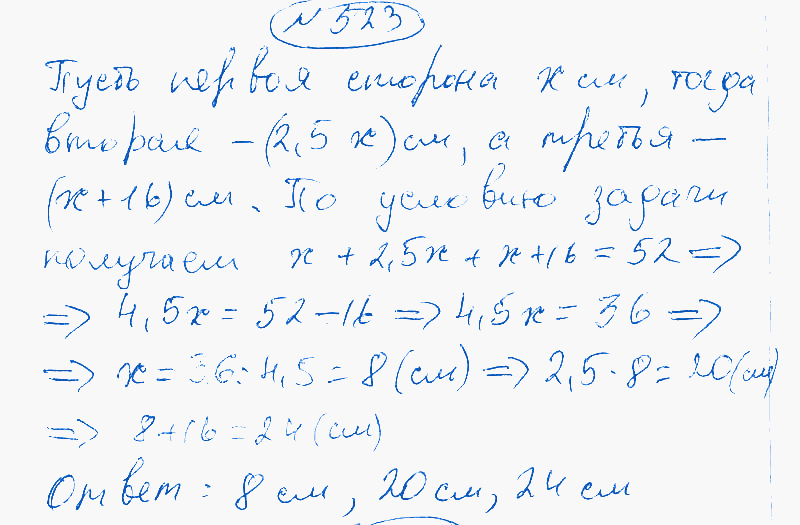 № 523
Пусть первая сторона x см, тогда
вторая – (2,5 x) см, а третья –
(x+16) см. По условию задачи
получаем x + 2,5x + x+16 = 52 =>
=> 4,5x = 52 – 16 => 4,5x = 36 =>
=> x = 36 : 4,5 = 8 (см) => 2,5 · 8 = 20 (см)
=> 8+16 = 24 (см)
Ответ : 8 см, 20 см, 24 см